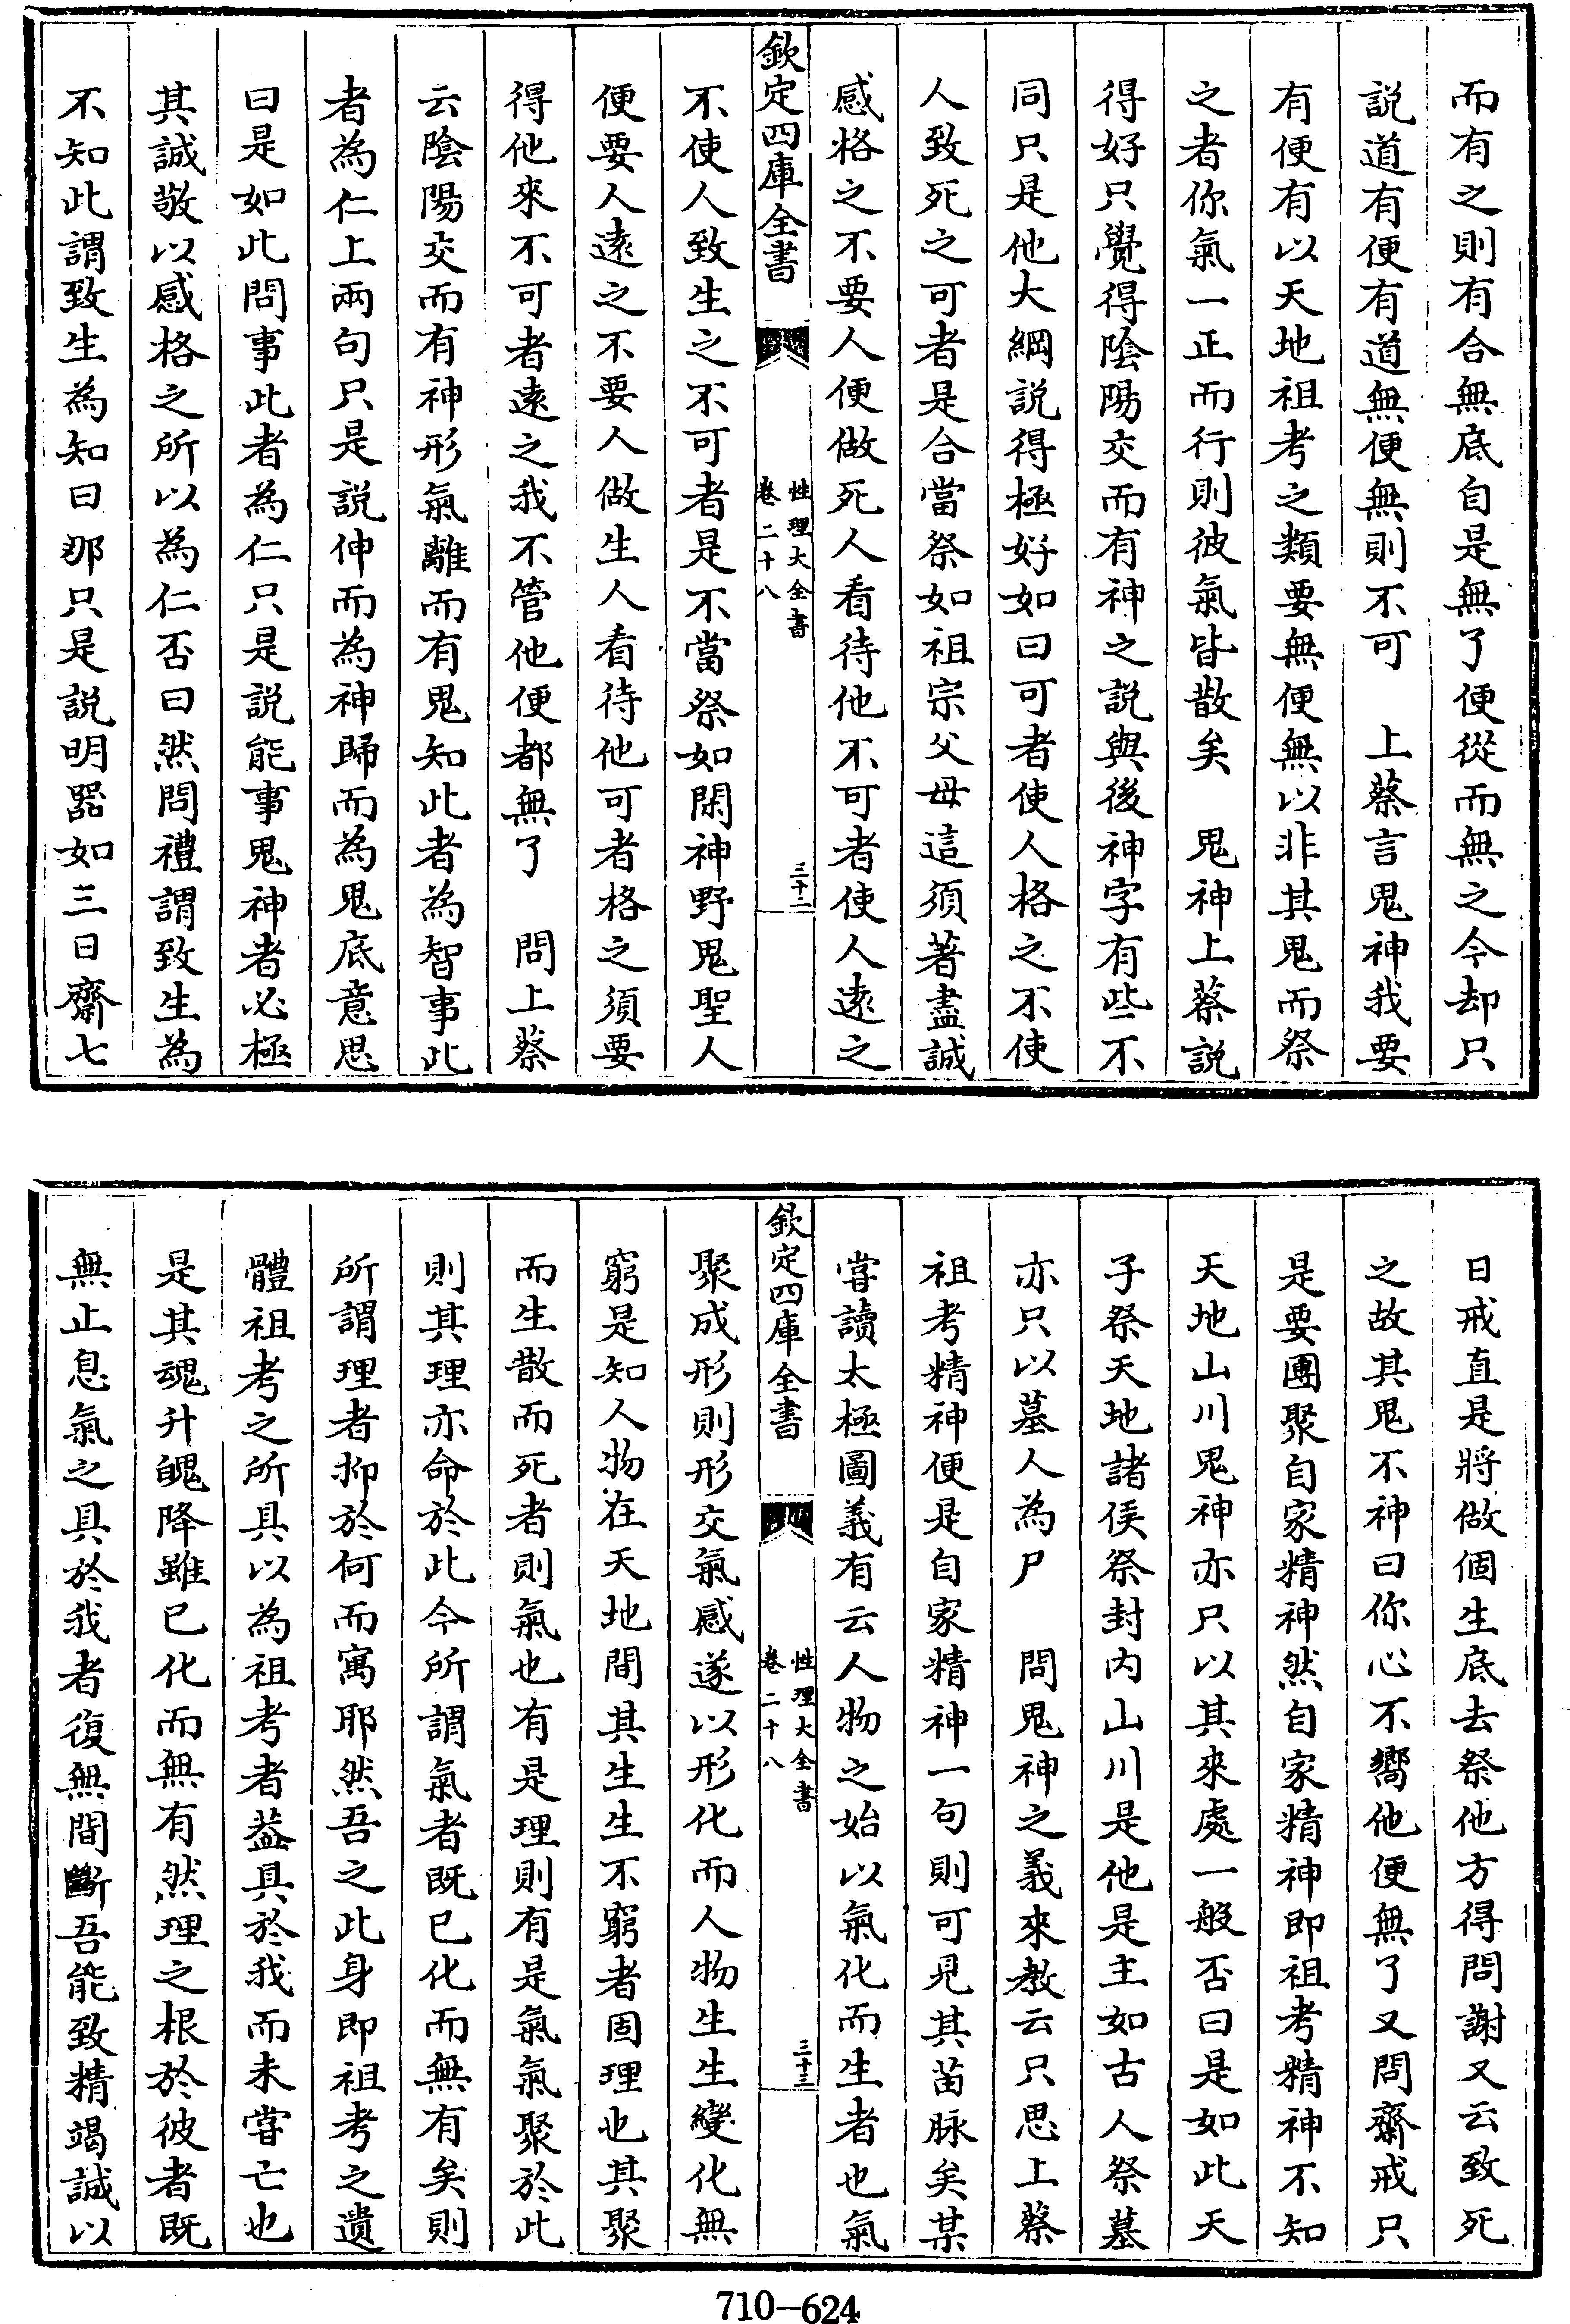 而有之則有合無底自是無了便從而無之今却只
説道有便有道無便無則不可　上蔡言鬼神我要
有便有以天地祖考之類要無便無以非其鬼而祭
之者你氣一正而行則彼氣皆散矣　鬼神上蔡説
得好只覺得陰陽交而有神之説與後神字有些不
同只是他大綱説得極好如曰可者使人格之不使
人致死之可者是合當祭如祖宗父母這須著盡誠
感格之不要人便做死人看待他不可者使人逺之
欽定四庫全書
性理大全書
卷二十八
三十二
不使人致生之不可者是不當祭如閑神野鬼聖人
便要人逺之不要人做生人看待他可者格之須要
得他來不可者逺之我不管他便都無了　問上蔡
云陰陽交而有神形氣離而有鬼知此者為智事此
者為仁上兩句只是説伸而為神歸而為鬼底意思
曰是如此問事此者為仁只是説能事鬼神者必極
其誠敬以感格之所以為仁否曰然問禮謂致生為
不知此謂致生為知曰那只是説明器如三日齋七
日戒直是將做個生底去祭他方得問謝又云致死
之故其鬼不神曰你心不嚮他便無了又問齋戒只
是要團聚自家精神然自家精神即祖考精神不知
天地山川鬼神亦只以其來處一般否曰是如此天
子祭天地諸侯祭封内山川是他是主如古人祭墓
亦只以墓人為尸　問鬼神之義來教云只思上蔡
祖考精神便是自家精神一句則可見其苗脉矣某
嘗讀太極圖義有云人物之始以氣化而生者也氣
欽定四庫全書
性理大全書
卷二十八
三十三
聚成形則形交氣感遂以形化而人物生生變化無
窮是知人物在天地間其生生不窮者固理也其聚
而生散而死者則氣也有是理則有是氣氣聚於此
則其理亦命於此今所謂氣者既已化而無有矣則
所謂理者抑於何而寓耶然吾之此身即祖考之遺
體祖考之所具以為祖考者葢具於我而未嘗亡也
是其魂升魄降雖已化而無有然理之根於彼者既
無止息氣之具於我者復無間斷吾能致精竭誠以
710-624